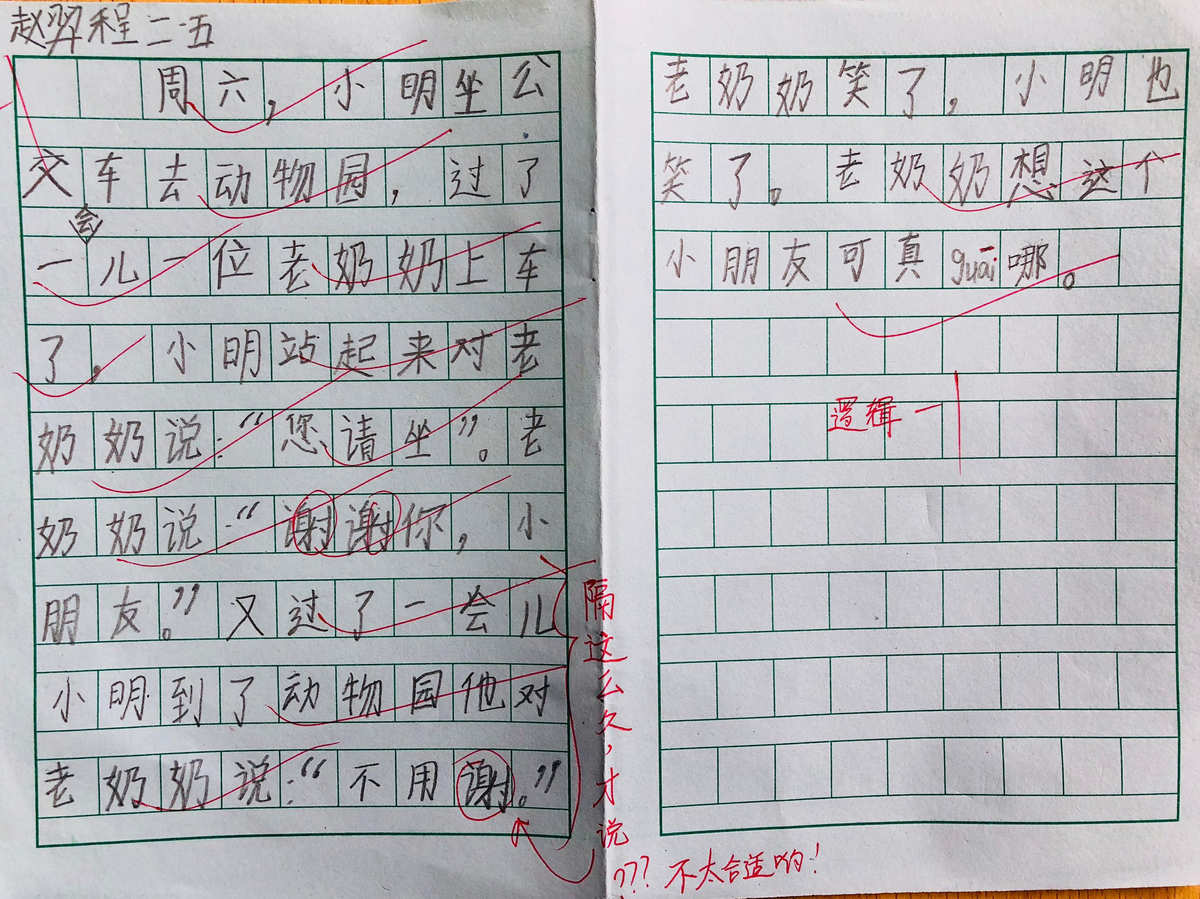 赵羿程二.五
周六,小明坐公
交车去动物园,过了
会
一儿一位老奶奶上车
了,小明站起来对老
奶奶说:“您请坐”。老
奶奶说:“谢谢你,小
朋友。”又过了一会儿
小明到了动物园他对
老奶奶说:“不用谢。”
隔这么久,才说
??? 不太合适哟!
老奶奶笑了,小明也
笑了。老奶奶想,这个
小朋友可真guāi哪。
逻辑一1